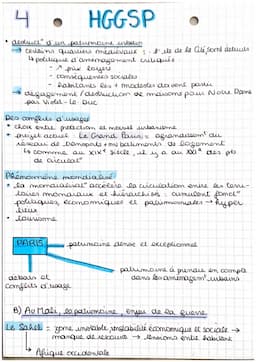 4 HGGSP
• destruct° d'un patrimoine urbain
→ certains quartiers médiévaux : île de la Cité sont détruits
↳ politique d'aménagement critiquée
- ↗ prix loyers
- conséquences sociales
- habitants les + modestes doivent partir
→ dégagement / destruction de maisons pour Notre Dame par Violet-le-Duc
Des conflits d'usages
• choix entre protection et nouvel urbanisme
• projet actuel : Le Grand Paris = agrandissement du
réseau de transports + mé bâtiments de logement
↳ comme au XIXe siècle, il y a au XXIe des pb
de circulat°
Phénomène mondialisé
• la mondialisat° accélère la circulation entre les terri-
toires mondiaux et hiérarchisés : cumulent fonct°
politiques, économiques et patrimoniales → hyper
lieux
• tourisme
PARIS
patrimoine dense et exceptionnel
patrimoine à prendre en compte
dans les aménagmt urbains
débats et
conflits d'usage
B) Au Mali, le patrimoine, enjeu de la guerre
Le Sahel = zone instable, instabilité économique et sociale →
manque de ressource → tensions entre habitants
↳ Afrique occidentale